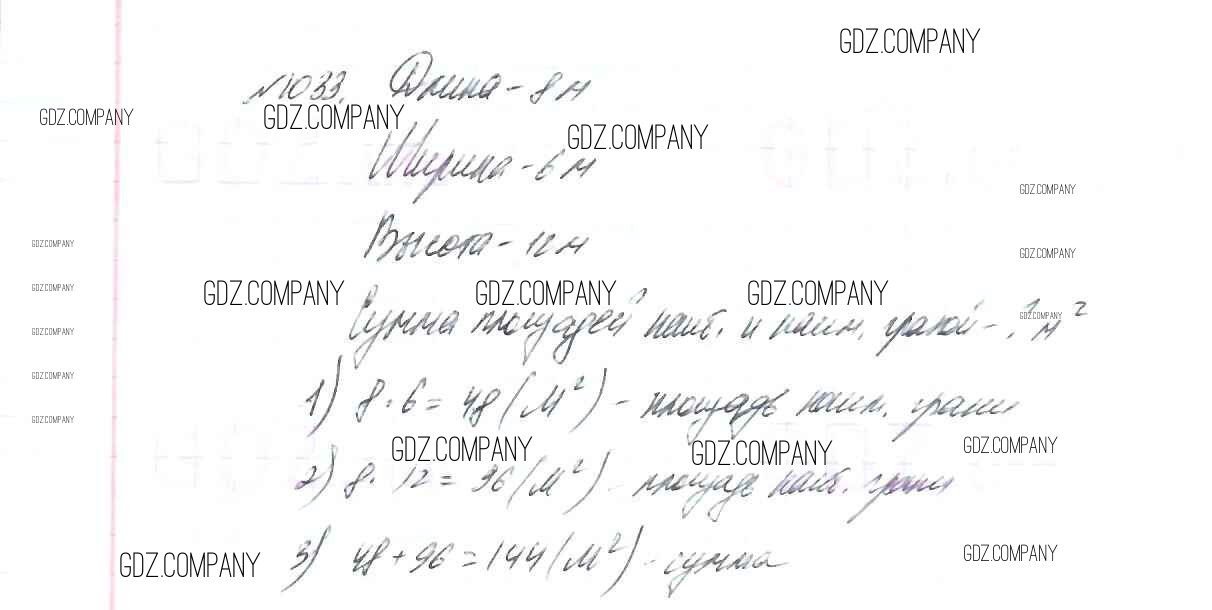 GDZ.COMPANY
№1033. Длина - 8 м
GDZ.COMPANY GDZ.COMPANY GDZ.COMPANY
Ширина - 6 м
GDZ.COMPANY
Высота - 12 м
GDZ.COMPANY GDZ.COMPANY
GDZ.COMPANY GDZ.COMPANY GDZ.COMPANY GDZ.COMPANY
Сумма площадей наиб. и наим. граней - ? м²
GDZ.COMPANY GDZ.COMPANY
1) 8 · 6 = 48 (м²) - площадь наим. грани
GDZ.COMPANY GDZ.COMPANY
GDZ.COMPANY GDZ.COMPANY GDZ.COMPANY
2) 8 · 12 = 96 (м²) - площадь наиб. грани
3) 48 + 96 = 144 (м²) - сумма
GDZ.COMPANY GDZ.COMPANY